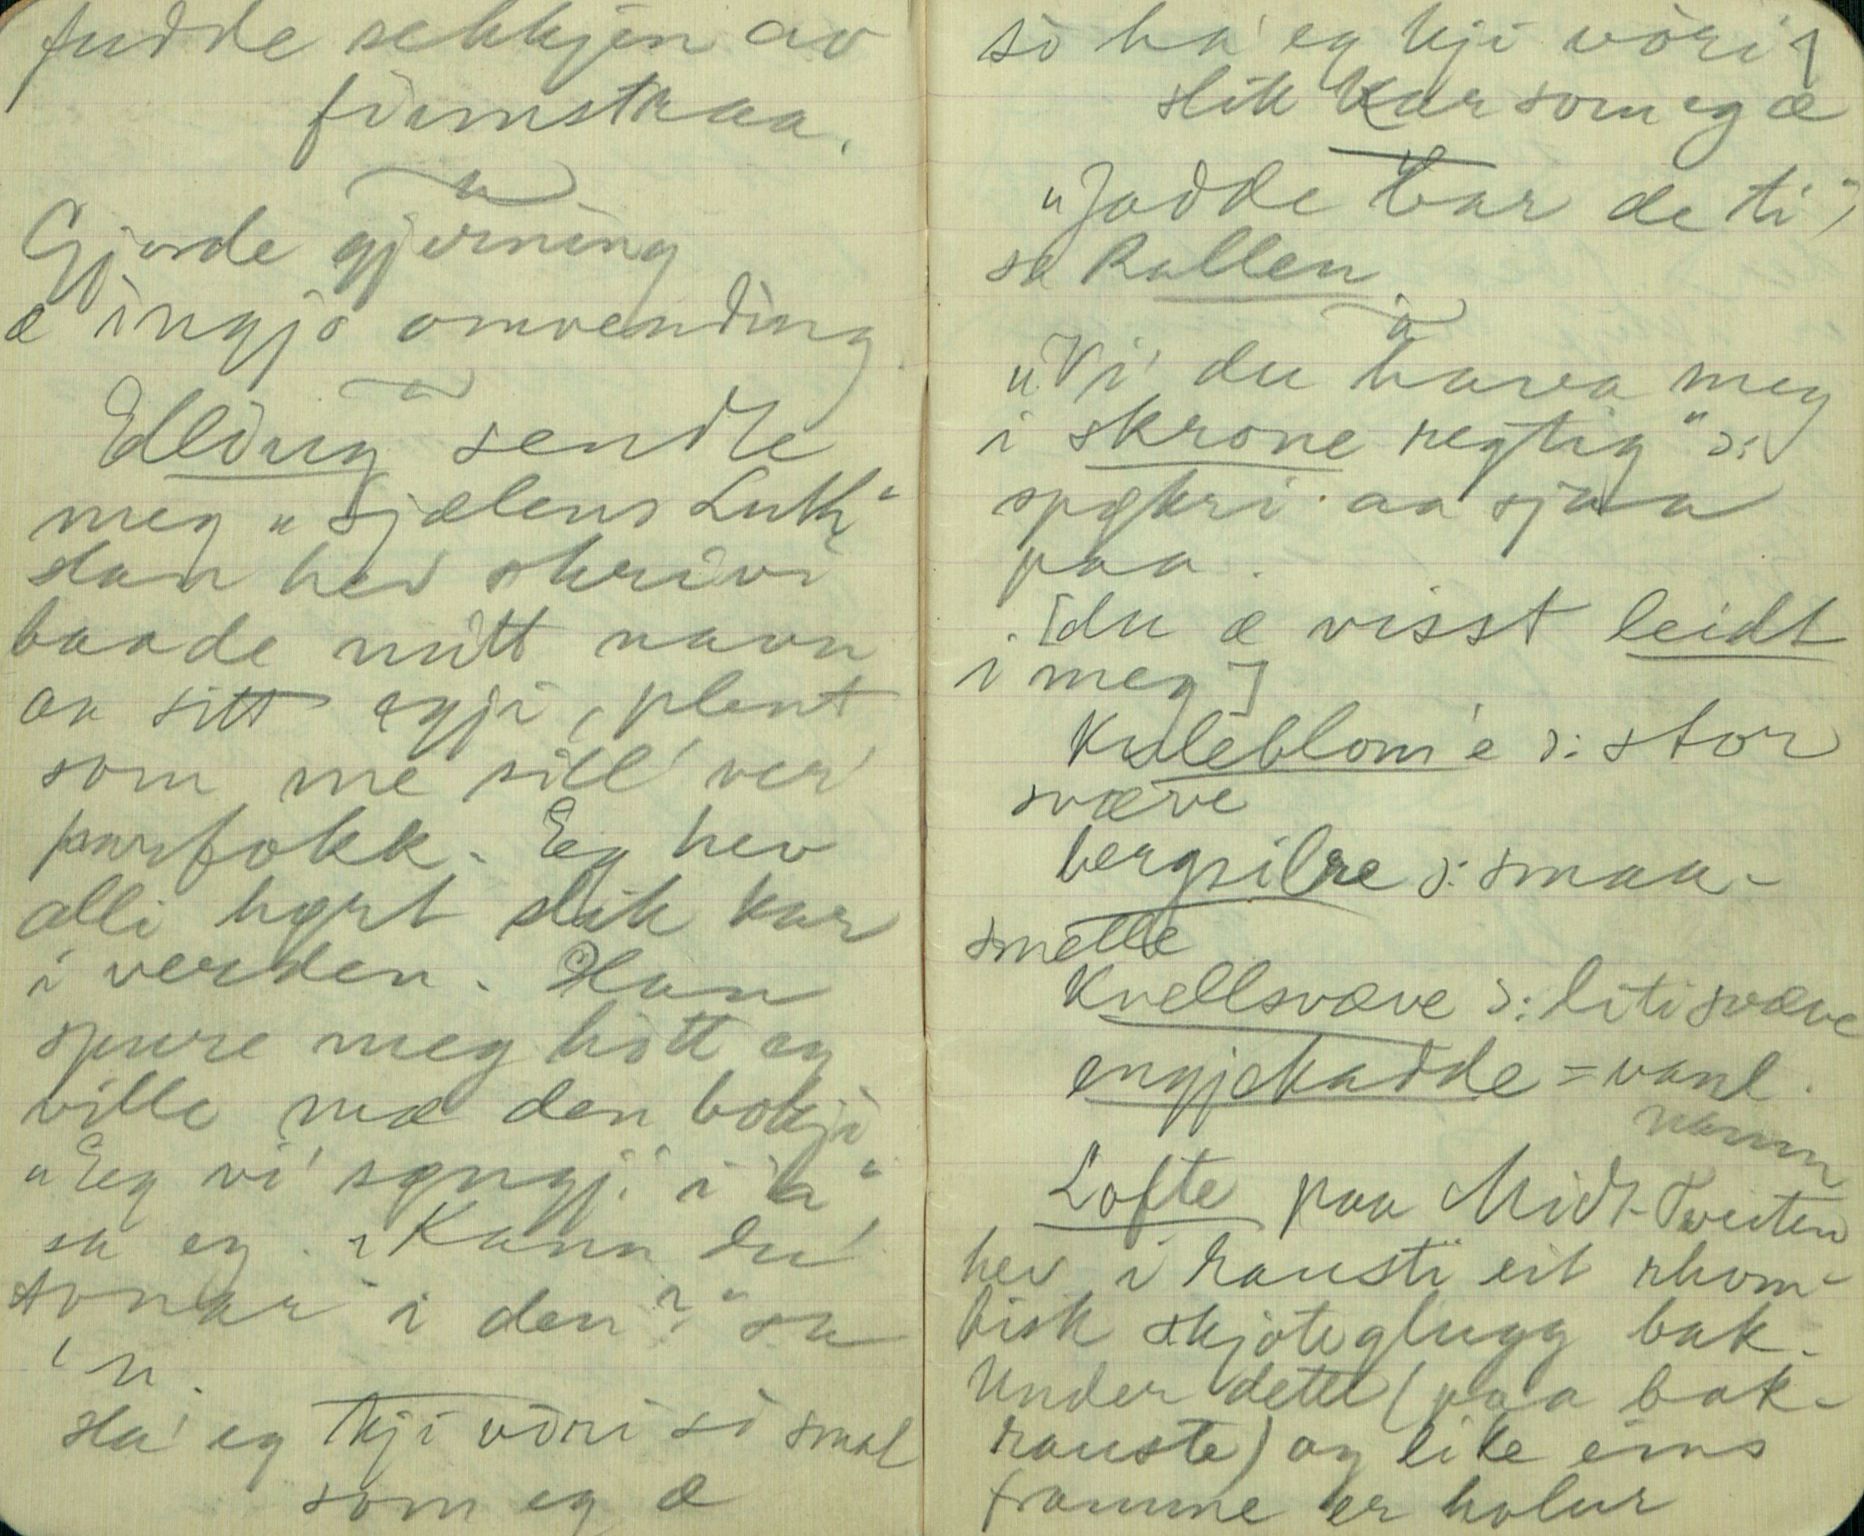 fudde sekkjen av
fiumstraa.
Gjorde gjerning
æ ingjo omvending.
Edling sendte
meg „Sjælens Luth"
Han hev skrivi
baade mitt navn
aa sitt egji, plent
som me sill' ver'
parfokk. Eg hev
alli høyrt slik kar
i verden. Han
spure meg hòtt eg
ville mæ den bokji
„Eg vi' syngji i 'a"
sa eg. „Kann du'
tonar i den?" sa
'n.
Ha' eg kji vòri sò smal
som eg æ
sò ha' eg kji vòri
slik kar som eg æ
„Jadde bar de ti",
sa Rallen
„Vi' du hava meg
i skrone regtig" ɔ:
spøkri aa sjaa
paa.
[du æ visst leidt
i meg]
Kuleblom'e ɔ: stor
svæve
bergsilre ɔ: smaa-
smelle
Kvellsvæve ɔ: liti svæve
engjekadde = vanl.
namn
Lofte paa Midt-Tveiten
hev i rausti eit rhom-
bisk skjoteglugg bak.
Under dette (paa bak-
rauste) og like eins
framme er holur